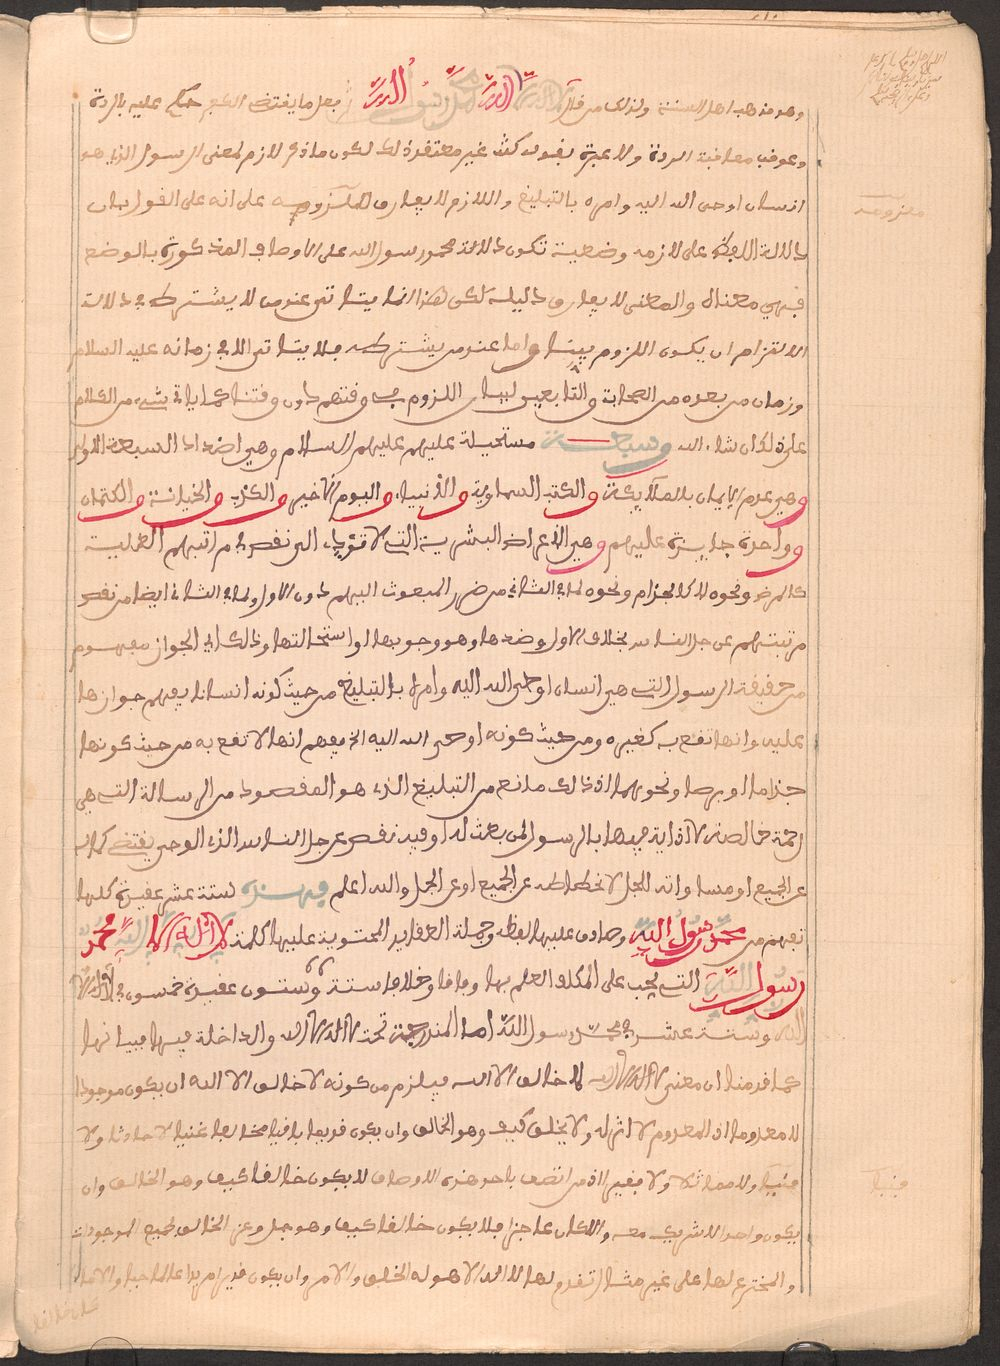 وهو مذهب اهل السنة ولذلك من قال لا اله الا الله محمد رسول الله بعد ما يقتضى حكم عليه بالردة
وعوقب معاقبة الردة ولا عبرة بقوله كنت غير معتقد ذلك لكون ما ذكر لازم لمعنى الرسول الذى هو
انسان اوحى الله اليه وامره بالتبليغ واللازم لا يفارق ملزومه على انه على القول بان
دلالة اللفظ على لازمه وضعية تكون دلالة محمد رسول الله على الاوصاف المذكورة بالوضع
فهي معناه والمعنى لا يفارق دليله لكن هذا انما يتاتى عند من لا يشترط في دلالة
الالتزام ان يكون اللزوم بينا واما عند من يشترطه فلا يتاتى الا في زمانه عليه السلام
وزمان من بعده من الصحابة والتابعين لبيان اللزوم في وقتهم دون وقتنا كما ياتى شيء من الكلام
على ذلك ان شاء الله وسبعة مستحيلة عليهم عليهم السلام وهي اضداد السبعة الاولى
وهي عدم الايمان بالملائكة والكتب السماوية والانبياء واليوم الاخر والكذب والخيانة والكتمان
وواحدة جايزة عليهم وهي الاعراض البشرية التى لا تؤدى الى نقص في مراتبهم العلية
كالمرض ونحوه لا كالجذام ونحوه لما في الثانى من ضرر المبعوث اليهم دون الاول ولما في الثانى ايضا من نقص
مرتبتهم عن جل الناس بخلاف الاول وضدها وهو وجوبها او استحالتها وذلك اي الجواز مفهوم
من حقيقة الرسول التى هي انسان اوحى الله اليه وامره بالتبليغ من حيث كونه انسانا يفهم جوازها
عليه وانها تقع به كغيره ومن حيث كونه اوحى الله اليه الخ يفهم انها لا تقع به من حيث كونها
جذاما او برصا ونحوهما اذ ذلك مانع من التبليغ الذى هو المقصود من الرسالة التى هي
رحمة خالصة لا اذاية فيها بالرسول لمن بعث له او فيه نقص عن جل الناس الذى الوحي يقتضى كماله
عن الجميع او مساواته للجل لا نحطاطه عن الجميع او عن الجل والله اعلم فهذه ستة عشر عقيدة كلها
تفهم من محمد رسول الله وصادق عليها لفظه وجملة العقايد المحتوية عليها كلمة لا اله الا الله محمد
رسول الله التى يجب على المكلف العلم بها وما فاق خلافها ستة وستون عقيدة خمسون في لا اله الا
الله وستة عشر في محمد رسول الله اما المندرجة تحت لا اله الا الله والداخلة فيها فبيانها
كما قدمنا ان معنى لا اله الا الله لا خالق الا الله فيلزم من كونه لا خالق الا الله ان يكون موجودا
لا معدوما اذ المعدوم لا اثر له ولا يخلق كيف وهو الخالق وان يكون قديما باقيا مخالفا غنيا لا حادثا ولا
فنيا ولا مماثلا ولا فقيرا اذ من اتصف باحد هذه الاوصاف لا يكون خالقا كيف وهو الخالق وان
يكون واحدا لا شريك معه والا كان عاجزا فلا يكون خالقا كيف وهو جل وعز الخالق لجميع الموجودات
والمخترع لها على غير مثال تقدم لها الا له الخلق والامر وان يكون قديرا مريدا عالما حيا والا لما
كان خالقا
ملزومه
فنيا